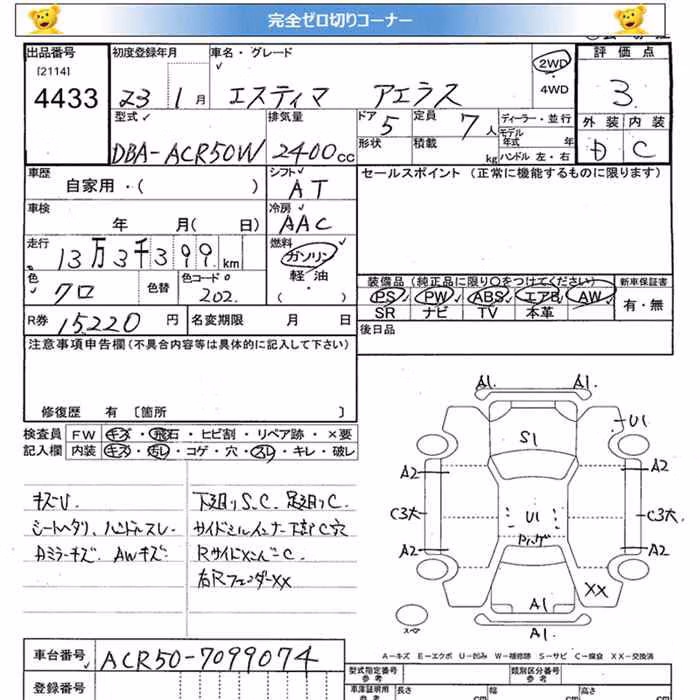 完全ゼロ切りコーナー
出品番号 初度登録年月 車名・グレード 2WD 評価点
[2114] 4WD
4433 23 1月 エスティマ アエラス 3
型式 排気量 ドア 5 定員 7人 ディーラー・並行 外装 内装
形状 積載 kg モデル年式 年 D C
DBA-ACR50W 2400cc ハンドル 左・右
車歴 シフト セールスポイント (正常に機能するものに限ります)
自家用・( ) AT
車検 冷房
年 月( 日) AAC
走行 燃料
13万3千399km ガソリン
色 色コード 軽油
クロ 色替 202 ( ・ )
装備品 (純正品に限り○をつけてください) 新車保証書
PS PW ABS エアB AW 有・無
SR ナビ TV 本革
R券 15,220円 名変期限 月 日 後日品
注意事項申告欄 (不具合内容等は具体的に記入して下さい)
修復歴 有 [箇所 ]
検査員 FW キズ・飛石・ヒビ割・リペア跡・×要
記入欄 内装 キズ・汚レ・コゲ・穴・スレ・キレ・破レ
キズU. 下廻りS.C. 足廻りC.
シートヘタリ、ハンドルスレ 下部C穴
AWキズ. C.
右RフェンダーXX
A1. A1.
U1
S1
A2 A2
C3大 U1 C3大
A2 A2
XX
A1
A1.
スペア
A-キズ E-エクボ U-凹み W-補修跡 S-サビ C-腐食 XX-交換済
車台番号 ACR50-7099074
登録番号
型式指定番号 参考 類別区分番号 参考
車庫証明用 参考 長さ cm 幅 cm 高さ cm